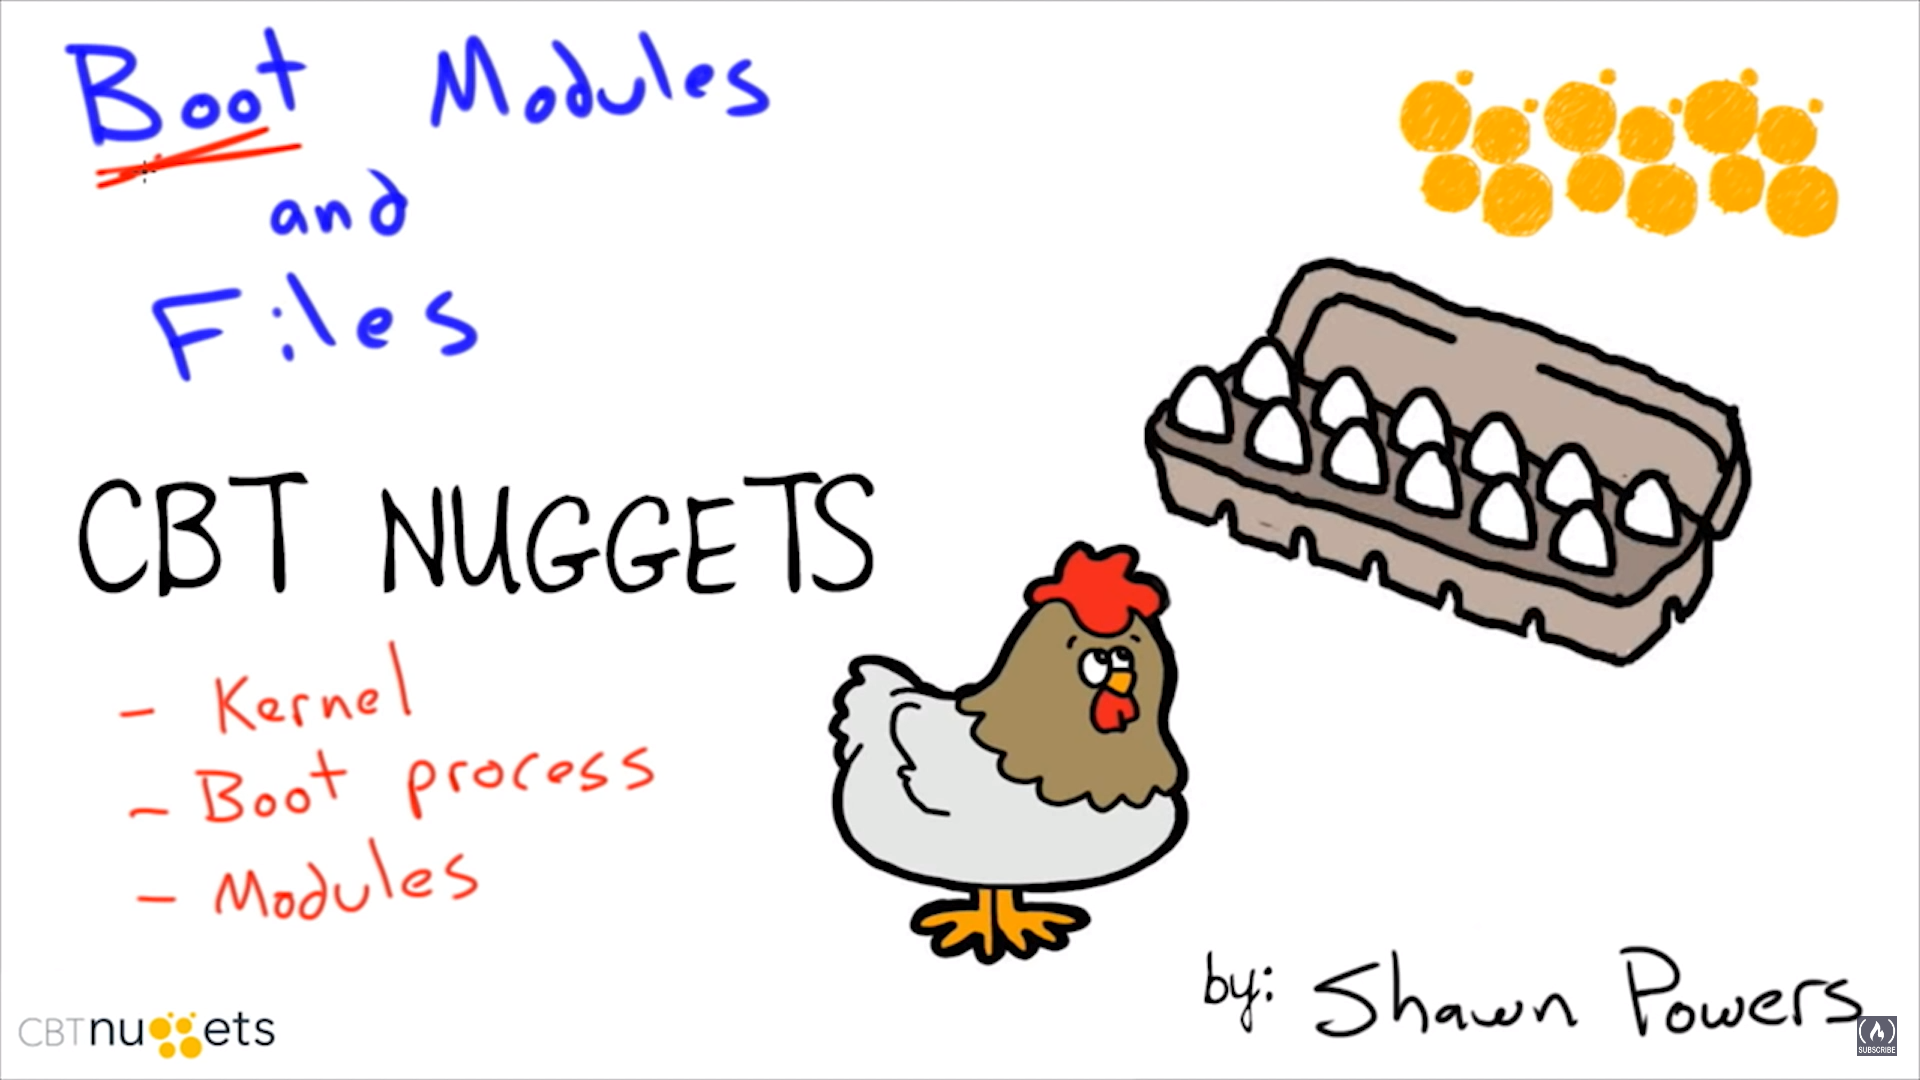 Boot Modules
and
Files
CBT NUGGETS
- Kernel
- Boot process
- Modules
by: Shawn Powers
CBTnuggets
SUBSCRIBE